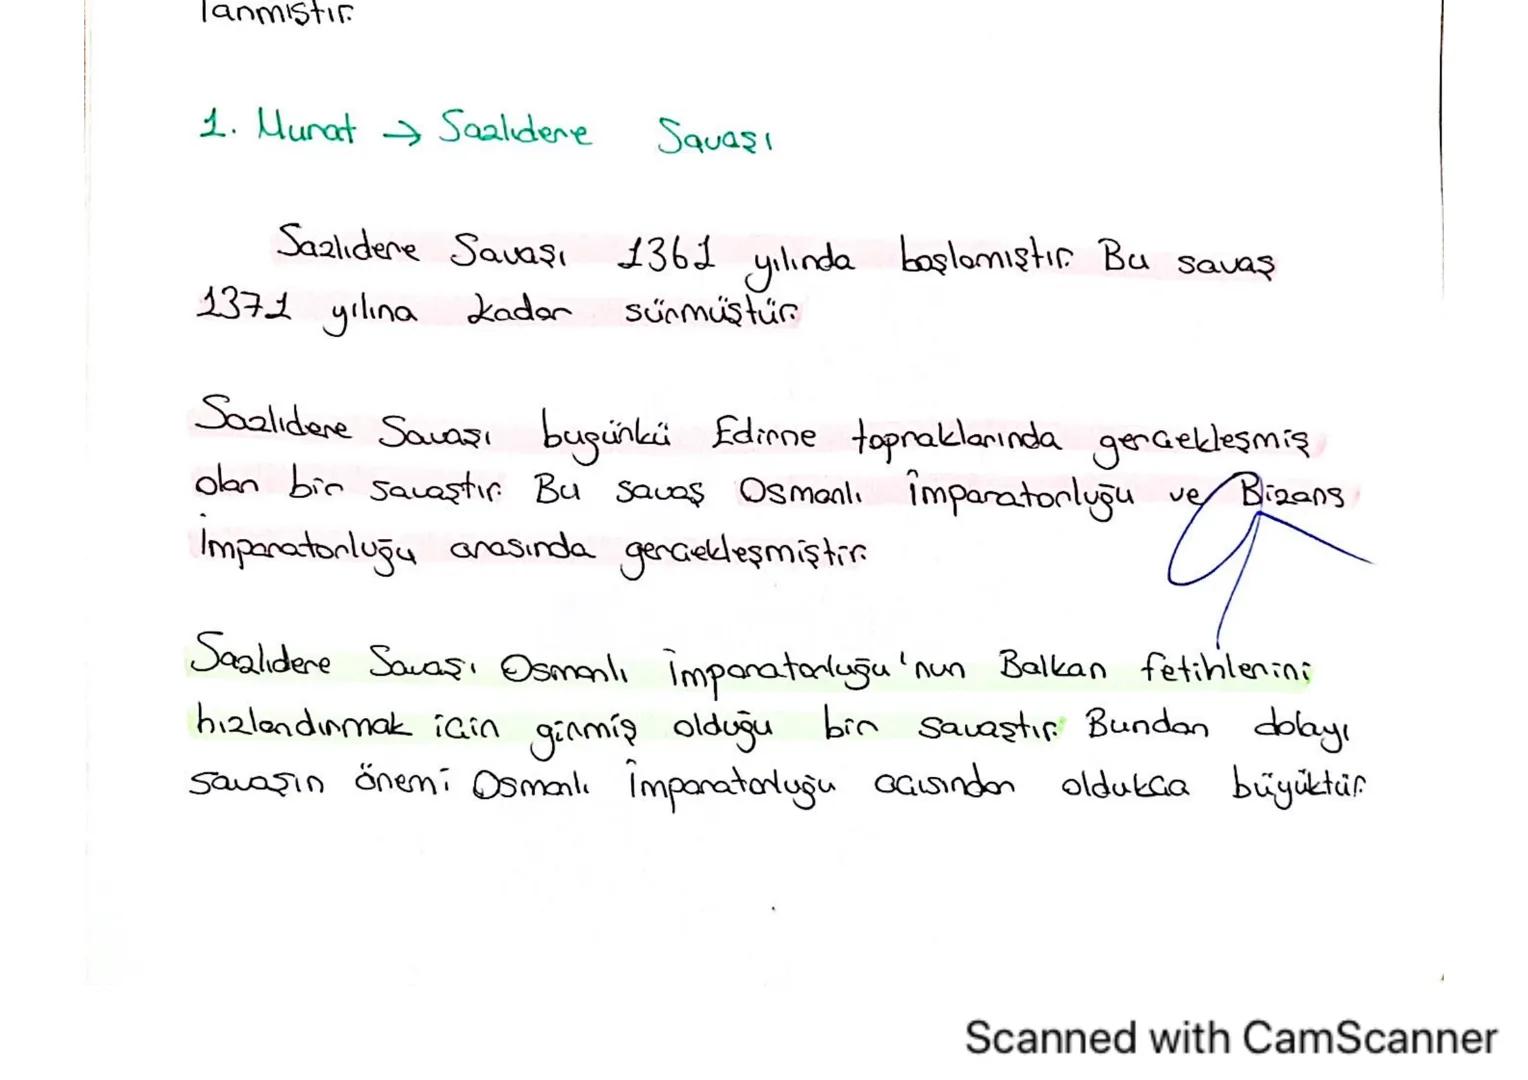 lanmıştır.
1. Murat → Sazlıdere Savaşı
Sazlıdere Savaşı 1361 yılında başlamıştır. Bu savaş
1371 yılına kadar sürmüştür.
Sazlıdere Savaşı bugünkü Edirne topraklarında gerçekleşmiş
olan bir savaştır. Bu savaş Osmanlı İmparatorluğu ve Bizans
İmparatorluğu arasında gerçekleşmiştir.
Sazlıdere Savaşı Osmanlı İmparatorluğu'nun Balkan fetihlerini
hızlandırmak için girmiş olduğu bir savaştır. Bundan dolayı
savaşın önemi Osmanlı İmparatorluğu açısından oldukça büyüktür.
Scanned with CamScanner